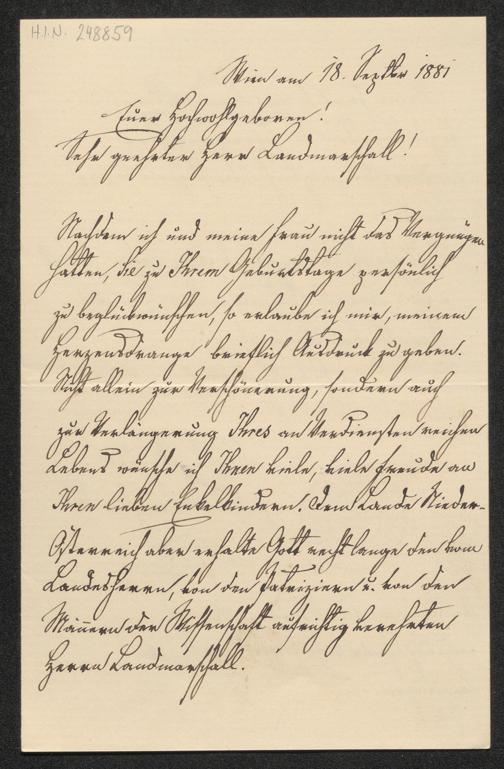 H.I.N. 248859
Wien am 18. Septbr 1881
Euer Hochwohlgeboren!
Sehr geehrter Herr Landmarschall!
Nachdem ich und meine Frau nicht das Vergnügen
hatten, Sie zu Ihrem Geburtstage persönlich
zu beglückwünschen, so erlaube ich mir, meinem
Herzensdrange brieflich Ausdruck zu geben.
Nicht allein zur Verschönerung, sondern auch
zur Verlängerung Ihres an Verdiensten reichen
Lebens wünsche ich Ihnen viele, viele Freude an
Ihren lieben Enkelkindern. Dem Lande Nieder-
Österreich aber erhalte Gott recht lange den vom
Landesherrn, von den Patriziern u. von den
Männern der Wissenschaft aufrichtig verehrten
Herrn Landmarschall.